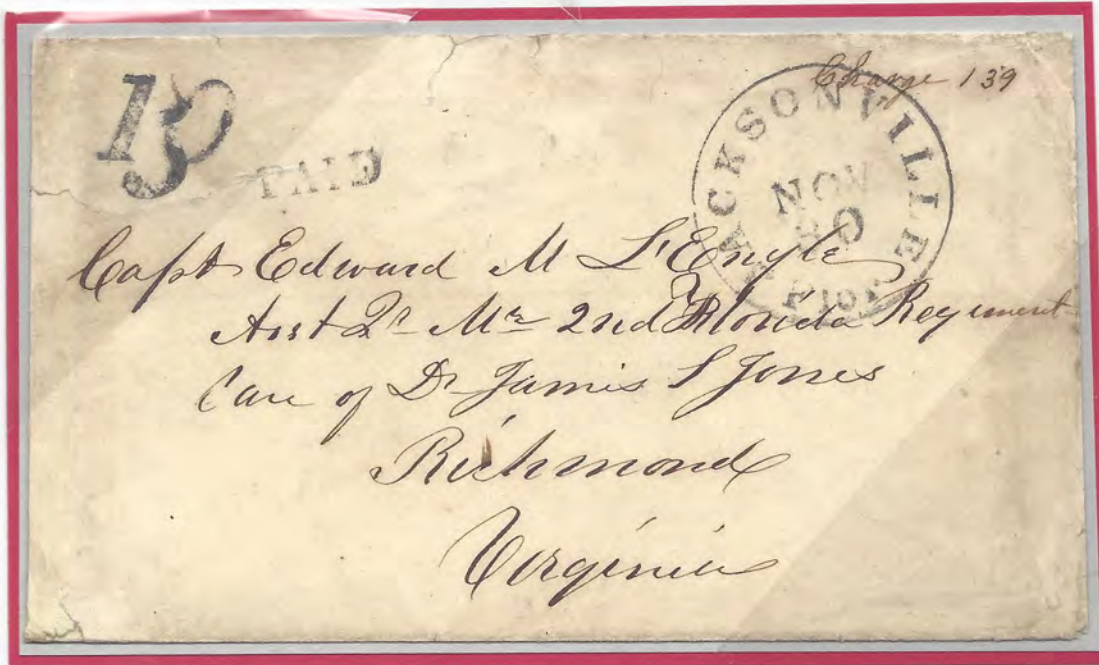 Charge 139
10
5
PAID
JACKSONVILLE Flor.
NOV
30
Capt Edward M L'Engle
Asst Qr Mr 2nd Florida Regiment
Care of Dr James S Jones
Richmond
Virginia